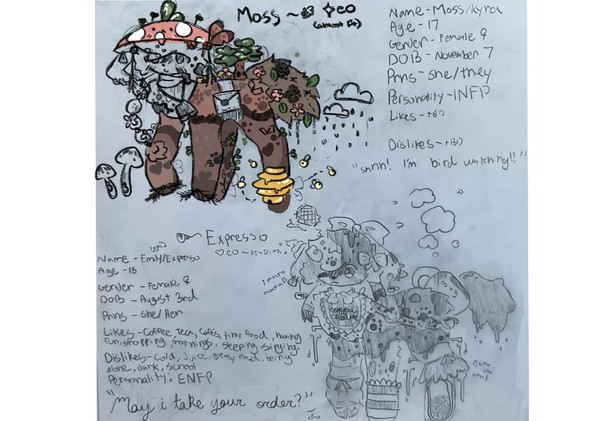 Moss ~
(almost fin)
Name - Moss/kyra
Age - 17
Gender - Female ♀
DOB - November 7
Pnns - she/they
Personality - INFP
Likes - TBD
Dislikes - TBD
"shhh! I'm bird watching!!"
Expresso
Name - Emily/Expresso
Age - 15
Gender - Female ♀
DOB - August 3rd
Pnns - She/Her
Likes - Coffee, Tea, Cafes, tiny food, having
fun, shopping, mornings, sleeping, singing,
Dislikes - Cold, juice, being
alone, dark, school
Personality: ENFP
"May i take your order?"